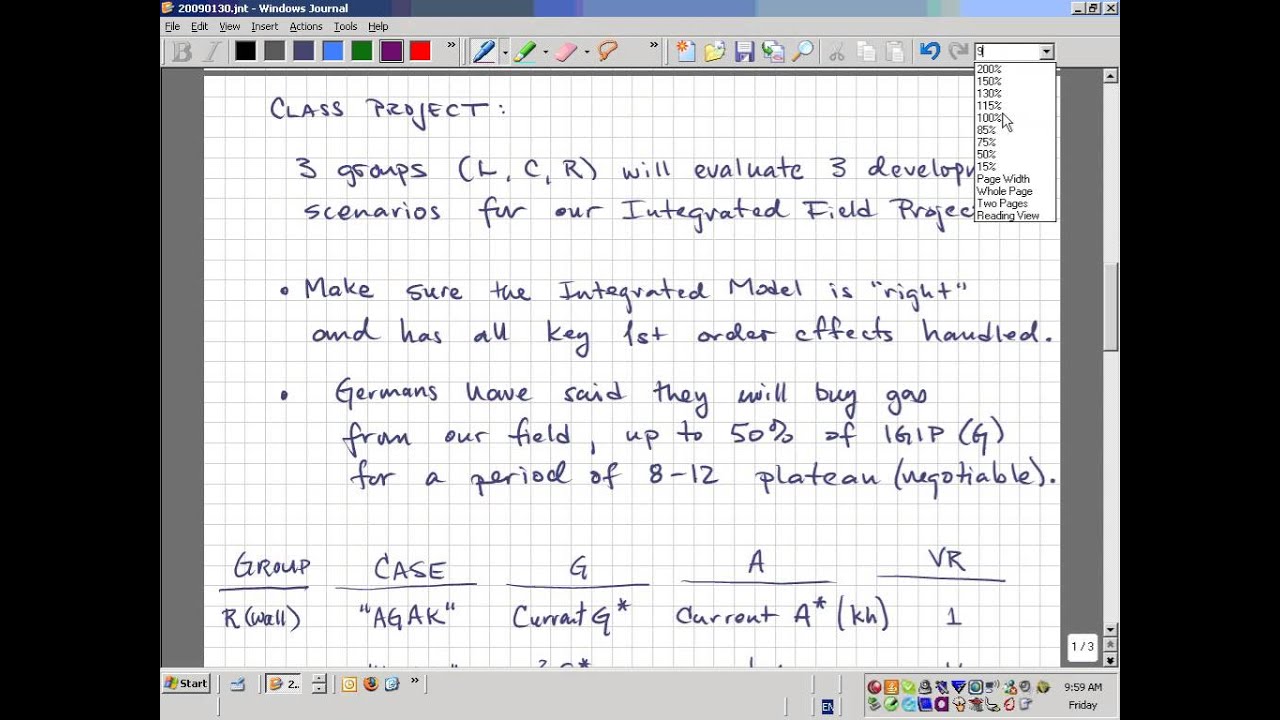 20090130.jnt - Windows Journal
File Edit View Insert Actions Tools Help
B I » » 9
200%
150%
130%
115%
100%
85%
75%
50%
15%
Page Width
Whole Page
Two Pages
Reading View
CLASS PROJECT:
3 groups (L, C, R) will evaluate 3 develop
scenarios for our Integrated Field Projec
• Make sure the Integrated Model is "right"
and has all key 1st order effects handled.
• Germans have said they will buy gas
from our field, up to 50% of IGIP (G)
for a period of 8-12 plateau (negotiable).
GROUP CASE G A VR
R (wall) "AGAK" Current G* Current A* (kh) 1
1 / 3
Start 2.. » EN 9:59 AM
Friday